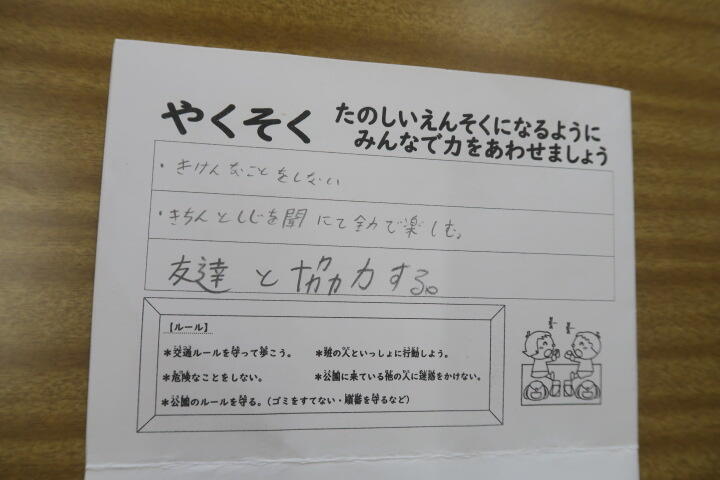 やくそく
たのしいえんそくになるように
みんなで力をあわせましょう
・きけんなことをしない
・きちんとしじを聞 にて全力で楽しむ。
友達と協力する。
【ルール】
*交通ルールを守って歩こう。 *班の人といっしょに行動しよう。
*危険なことをしない。 *公園に来ている他の人に迷惑をかけない。
*公園のルールを守る。(ゴミをすてない・順番を守るなど)